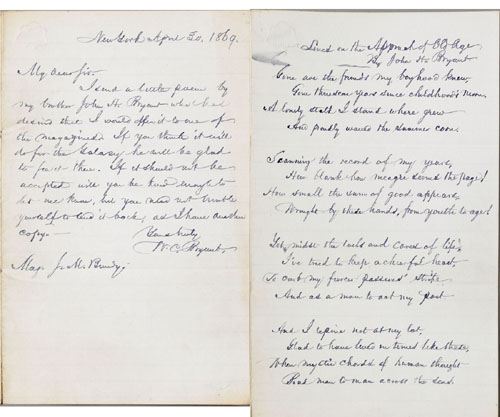 New York April 30. 1869.
My dear sir.
I send a little poem by
my brother John H. Bryant who has
desired that I would offer it to one of
the magazines. If you think it will
do for the Galaxy he will be glad
to see it there. If it should not be
accepted will you be kind enough to
let me know, but you need not trouble
yourself to send it back, as I have another
copy.
Yours truly,
W. C. Bryant.
Maj. J. M. Bundy.
Lines on the Approach of Old Age.
By John H. Bryant
Gone are the friends my boyhood knew,
Gone three score years since childhood's morn
A lonely stalk I stand where grew
And proudly waved the summer corn.
Scanning the record of my years,
How blank how meagre seems the page!
How small the sum of good appears,
Wrought by these hands, from youth to age!
Yet, midst the toils and cares of life,
I've tried to keep a cheerful heart,
To curb my fiercer passions' strife
And as a man to act my part
And I repine not at my lot,
Glad to have lived in times like these,
When mystic chords of human thought
Bind man to man across the seas.